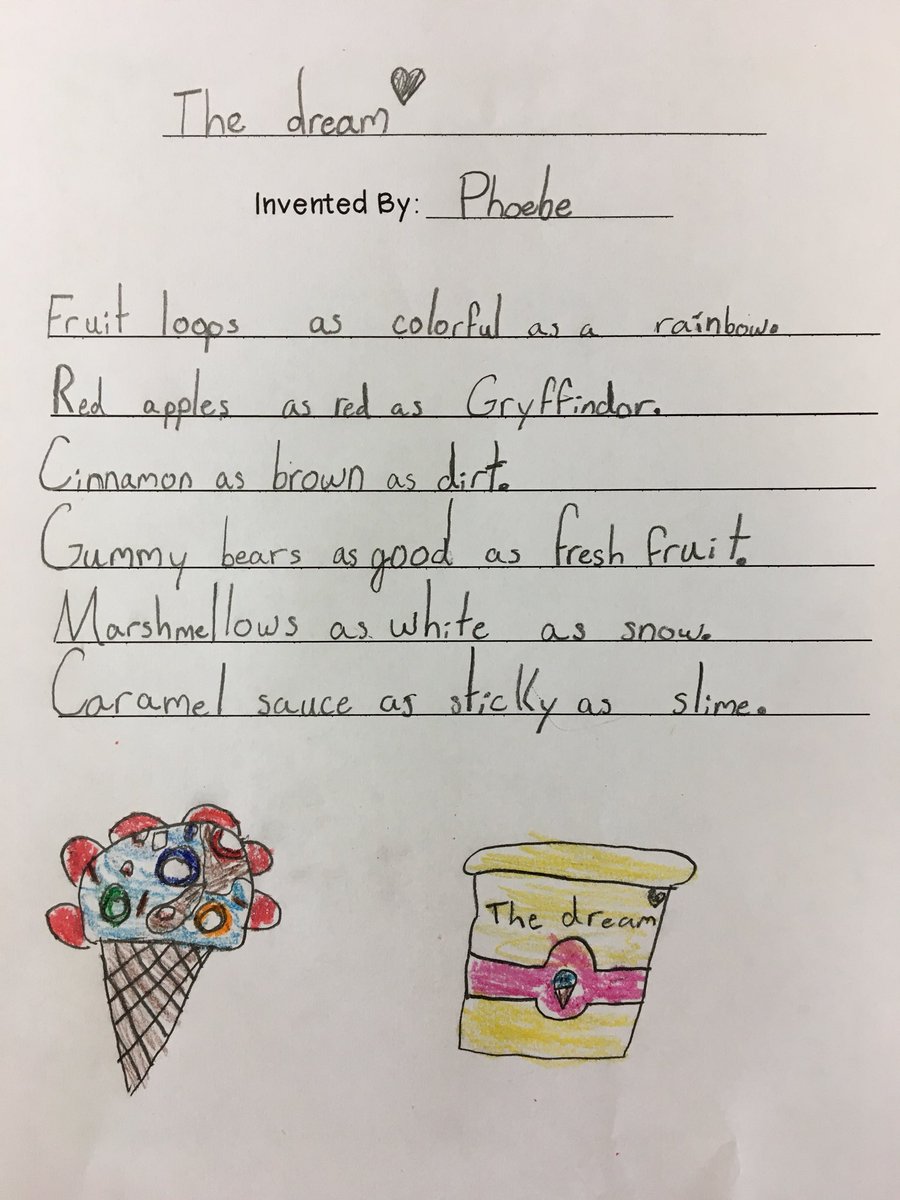 The dream
Invented By: Phoebe
Fruit loops as colorful as a rainbow.
Red apples as red as Gryffindor.
Cinnamon as brown as dirt.
Gummy bears as good as fresh fruit.
Marshmellows as white as snow.
Caramel sauce as sticky as slime.
The dream